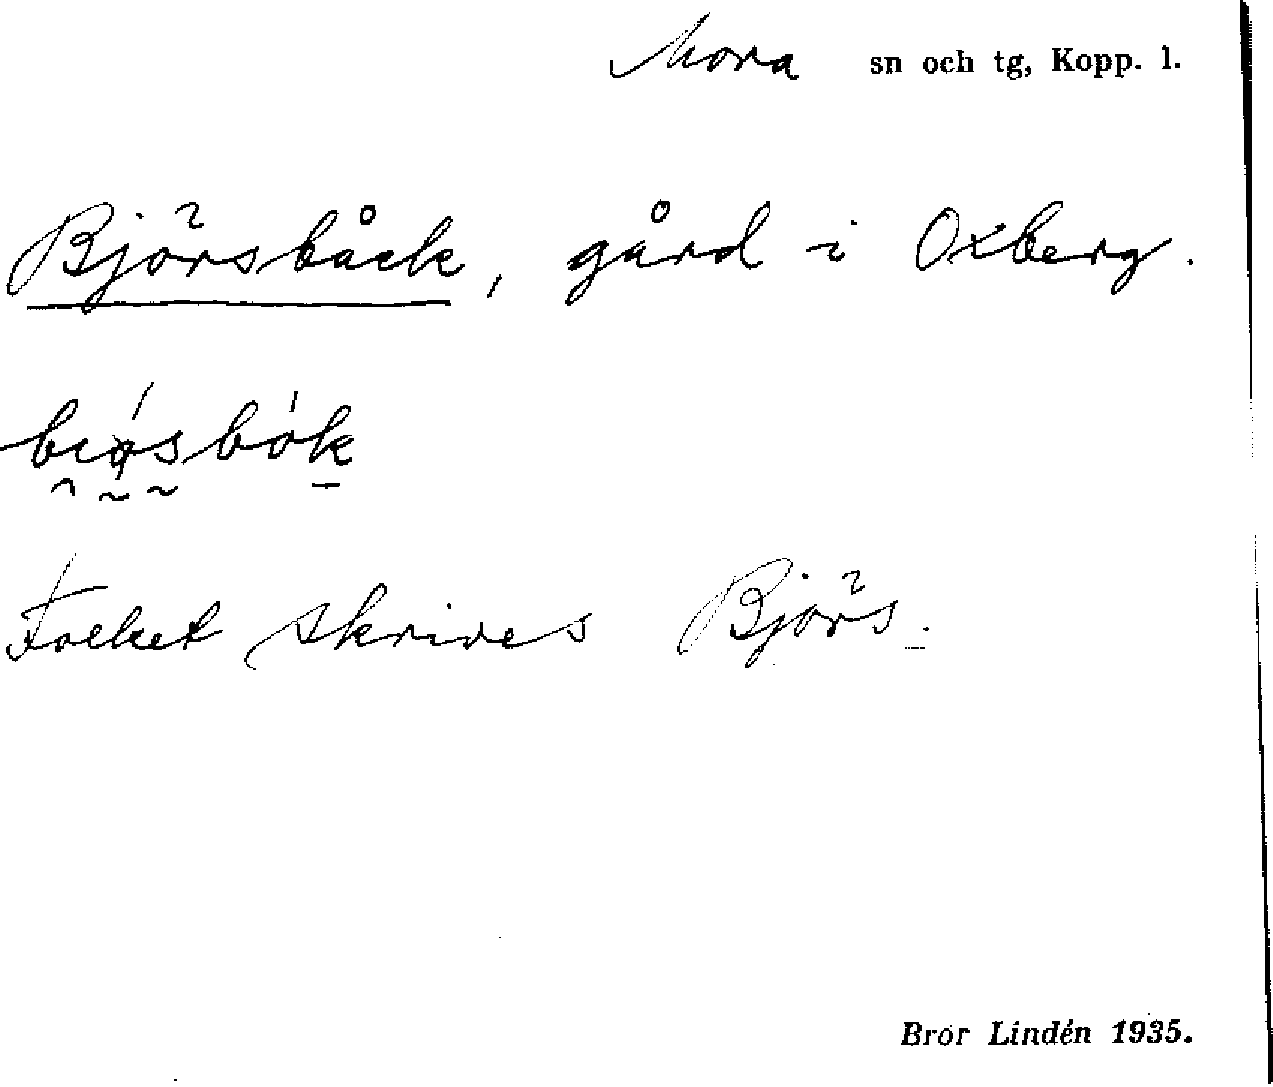 Mora sn och tg, Kopp. l.
Björsbåck, gård i Oxberg.
Folket skrives Björs.
Bror Lindén 1935.